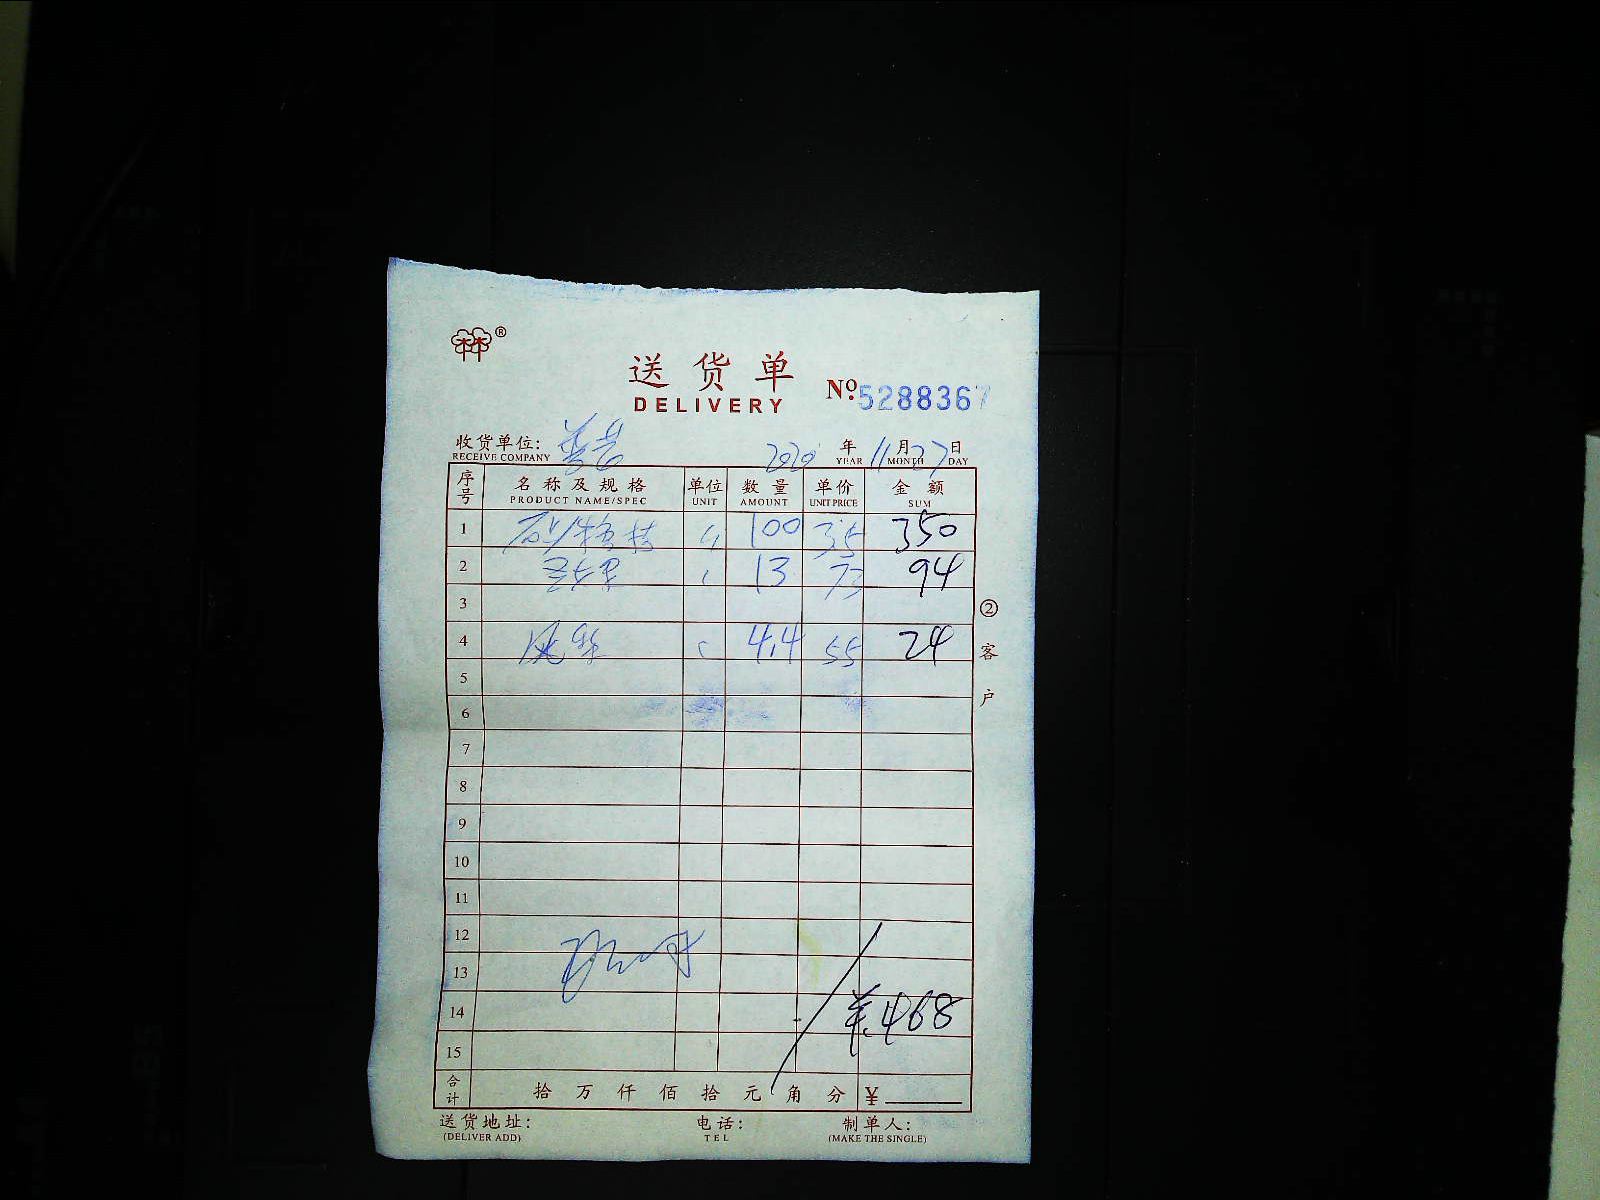 ®
送货单
DELIVERY
No. 5288367
收货单位: 2020 年 11 月 27 日
RECEIVE COMPANY YEAR MONTH DAY
序号 名称及规格 单位 数量 单价 金额
PRODUCT NAME/SPEC UNIT AMOUNT UNIT PRICE SUM
1 100 35 350
2 13 73 94
3
4 4.4 55 24
5
6
7
8
9
10
11
12
13
14 468
15
合计 拾 万 仟 佰 拾 元 角 分 ¥
② 客户
送货地址: 电话: 制单人:
(DELIVER ADD) TEL (MAKE THE SINGLE)